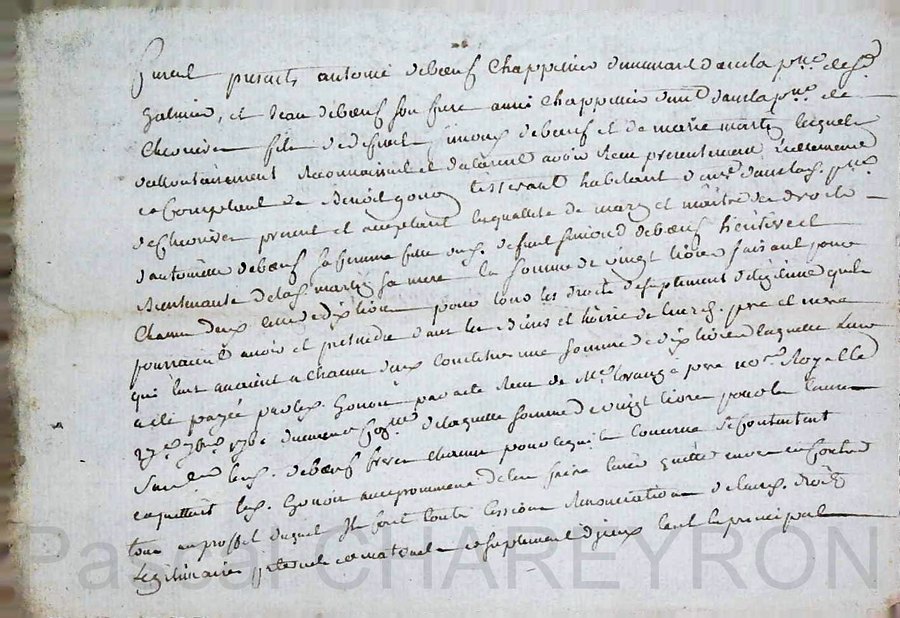 furent presents antoine deboeuf Chappelier demeurant dans la p.sse de s.t
Galmier, et Jean deboeuf son frere aussi Chappellier dem.t dans la p.sse de
Chevrieres fils de deffunt simond deboeuf et de marie martij lesquels
vollontairement Reconnaissent et declarent avoir Receu presentement reellement
et Comptant de Benoit gonon tisserant habitant dans la p.sse
de Chevrieres present et acceptant en quallite de mary et maitre des droits
d'antoinette deboeuf sa femme fille dud. deffunt simond deboeuf heritiere et
de lad. martij sa mere la somme de vingt livres faisant pour
Chacun deux celle de dix livres pour tous les droits de suplement de legitime quils
pourraient avoir et pretendre dans les Biens et hoirie de leursd. pere et mere
qui leur auraient a chacun deux constitué une somme de dix livres laquelle leur
a été payée par led. Gonon par acte Receu de M.e pere no.re Royalle
de laquelle somme de vingt livres
lesd. deboeuf freres chacun pour ce qui le concerne se contentent
en quittent led. Gonon avec promesse de
tour au proffit duquel Ils font toute cession Renonciation de leursd. droits
Legitimaires paternels et maternels et suplement diceux tant le principal
Pascal CHAREYRON